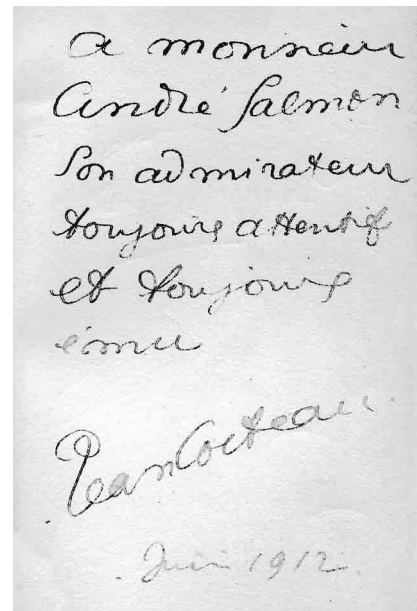 a monsieur
André Salmon
son admirateur
toujours attentif
et toujours
ému
Jean Cocteau
Juin 1912